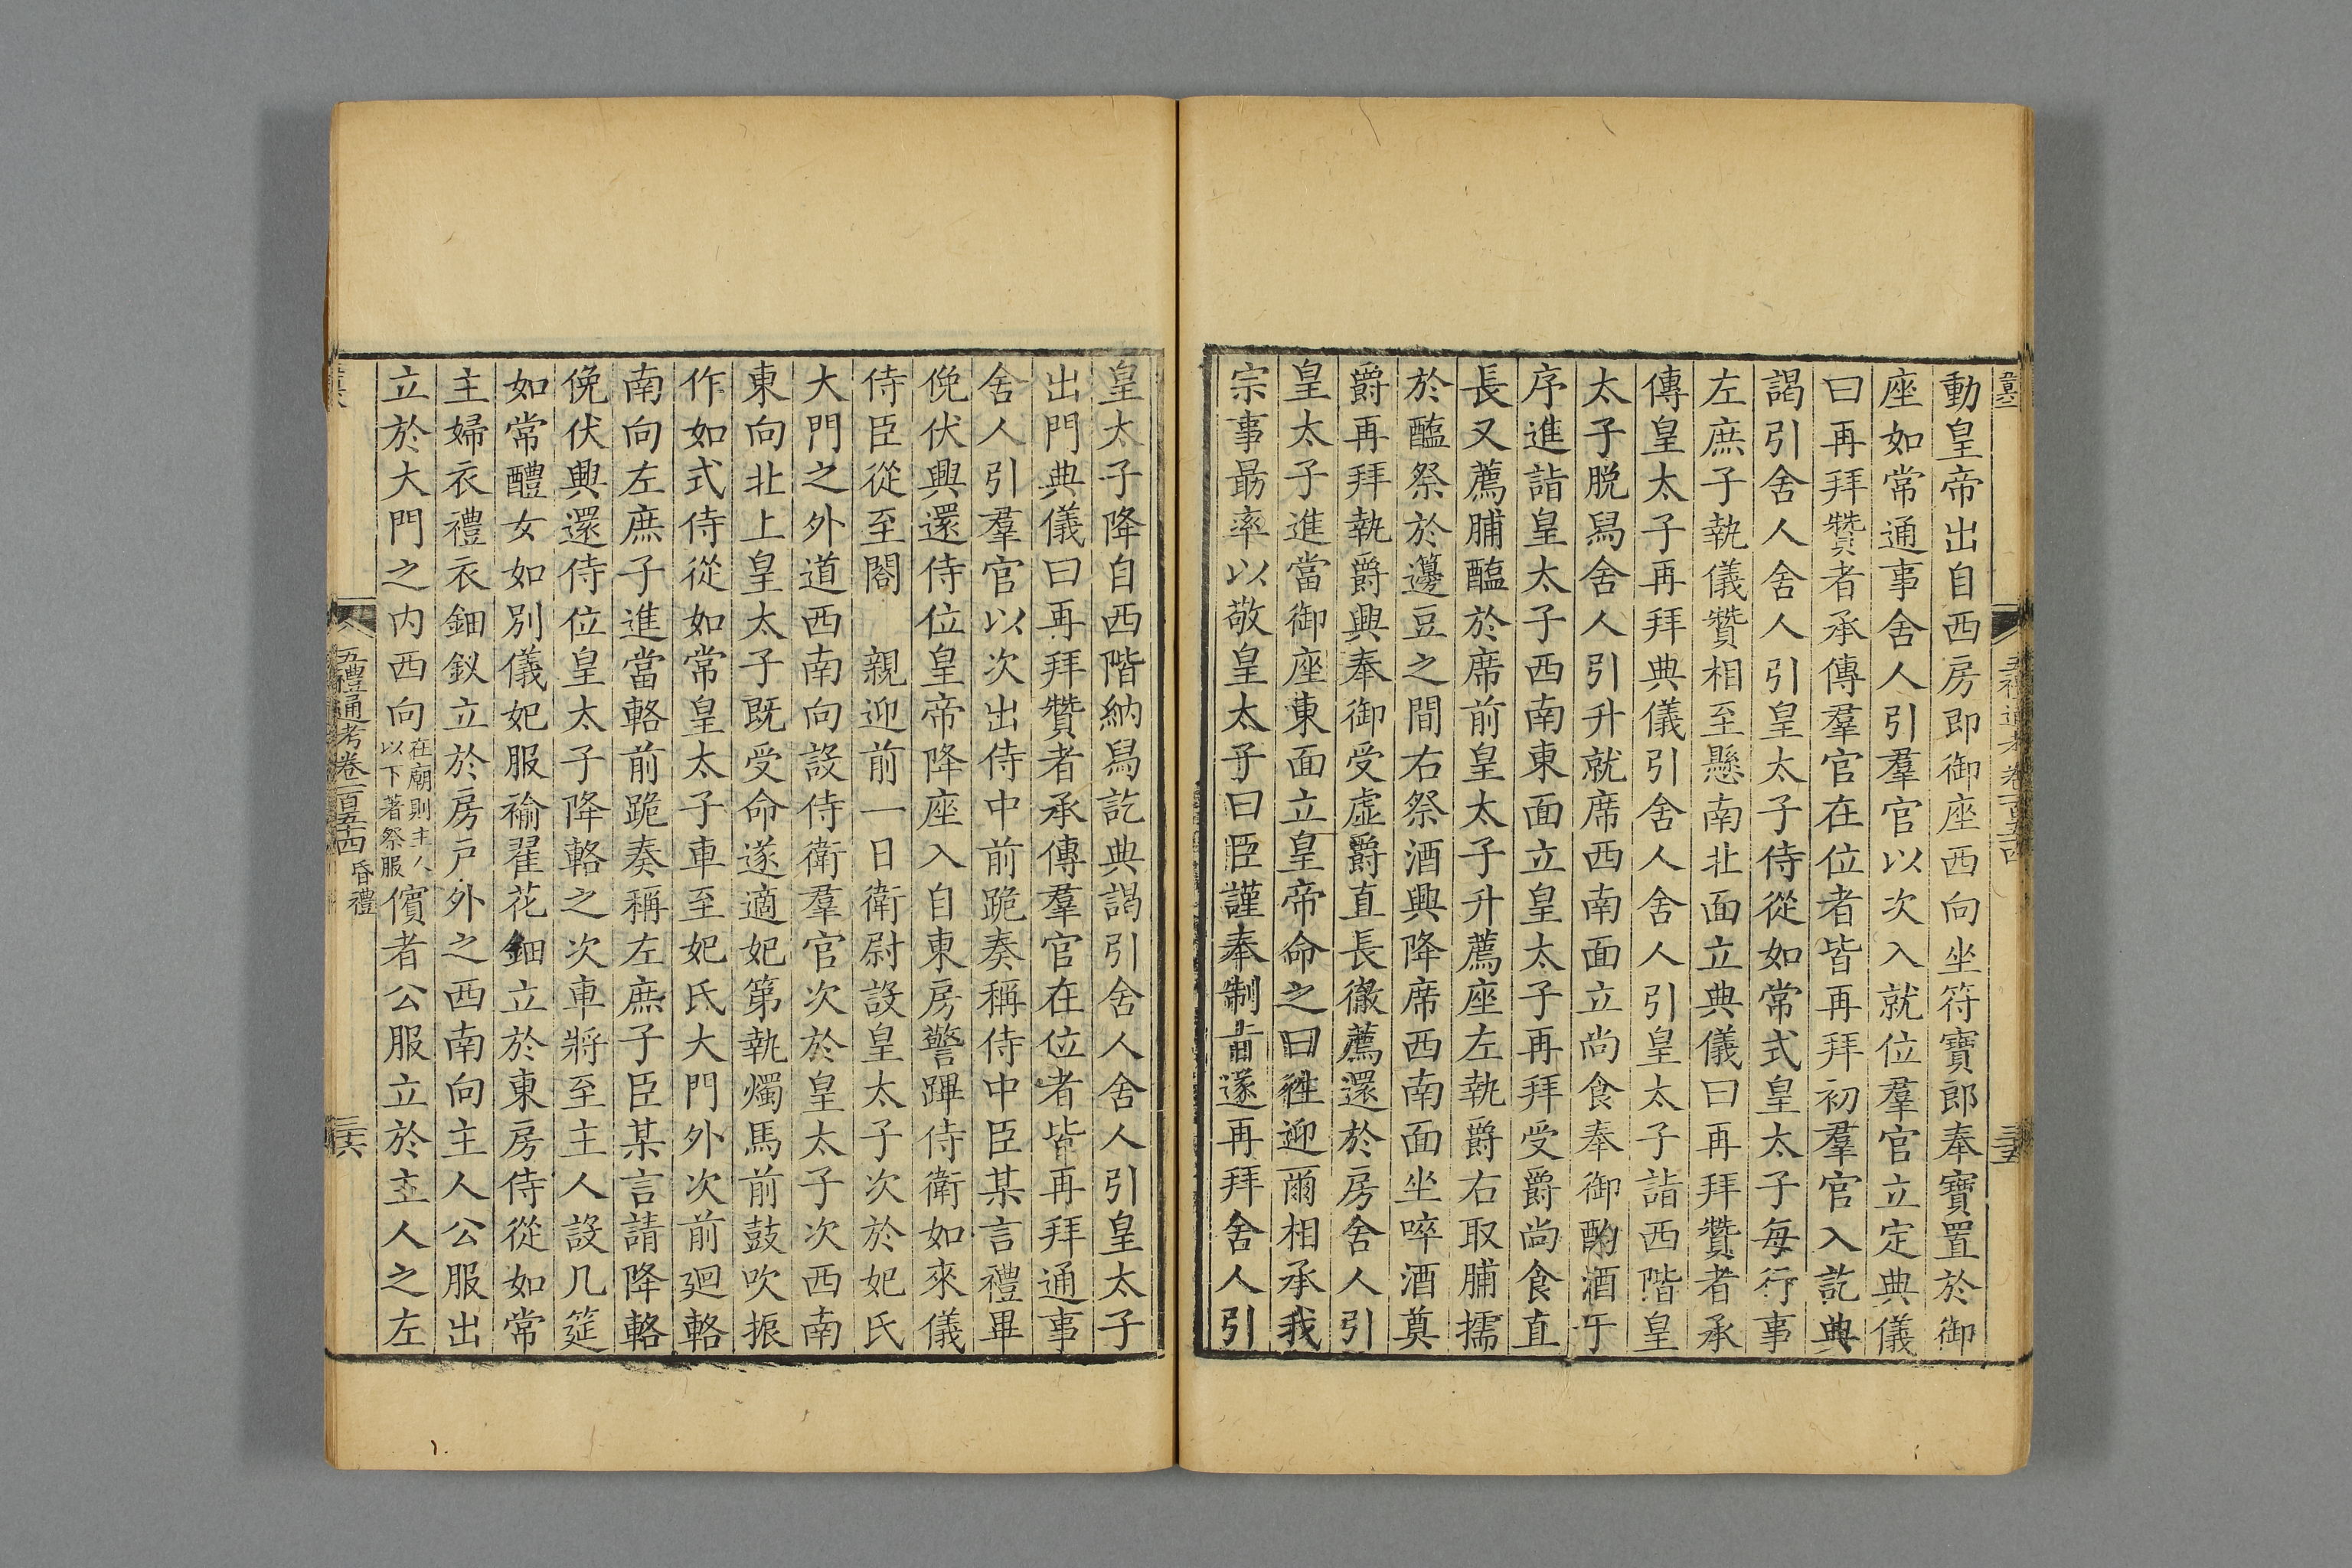 動皇帝出自西房即御座西向坐符寶郎奉寶置於御
座如常通事舍人引羣官以次入就位羣官立定典儀
曰再拜贊者承傳羣官在位者皆再拜初羣官入訖典
謁引舍人舍人引皇太子侍從如常式皇太子每行事
左庶子執儀贊相至懸南北面立典儀曰再拜贊者承
傳皇太子再拜典儀引舍人舍人引皇太子詣西階皇
太子脫舄舍人引升就席西南面立尚食奉御酌酒于
序進詣皇太子西南東面立皇太子再拜受爵尚食直
長又薦脯醢於席前皇太子升薦座左執爵右取脯擩
於醢祭於籩豆之間右祭酒興降席西南面坐啐酒奠
爵再拜執爵興奉御受虛爵直長徹薦還於房舍人引
皇太子進當御座東面立皇帝命之曰往迎爾相承我
宗事勗率以敬皇太子曰臣謹奉制旨遂再拜舍人引
皇太子降自西階納舄訖典謁引舍人舍人引皇太子
出門典儀曰再拜贊者承傳羣官在位者皆再拜通事
舍人引羣官以次出侍中前跪奏稱侍中臣某言禮畢
俛伏興還侍位皇帝降座入自東房警蹕侍衛如來儀
侍臣從至閤　親迎前一日衛尉設皇太子次於妃氏
大門之外道西南向設侍衛羣官次於皇太子次西南
東向北上皇太子既受命遂適妃第執燭馬前鼓吹振
作如式侍從如常皇太子車至妃氏大門外次前迴輅
南向左庶子進當輅前跪奏稱左庶子臣某言請降輅
俛伏興還侍位皇太子降輅之次車將至主人設几筵
如常醴女如別儀妃服褕翟花鈿立於東房侍從如常
主婦衣禮衣鈿釵立於房戶外之西南向主人公服出
立於大門之內西向在廟則主人以下著祭服儐者公服立於主人之左
五禮通考卷一百五十四 昏禮
三十六